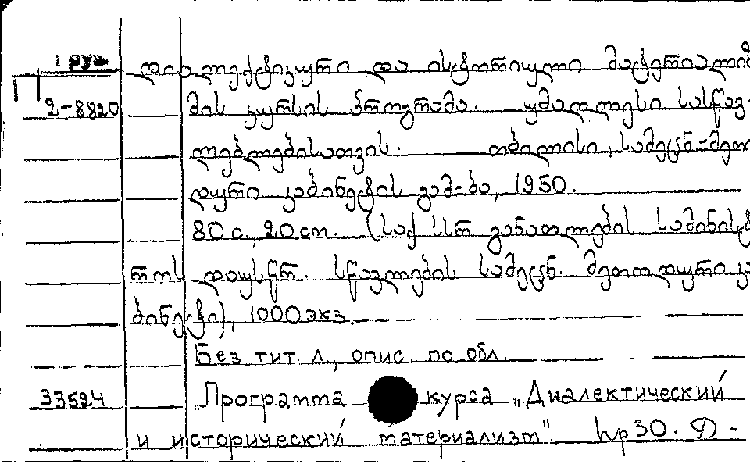 1 груз. დიალექტიკური და ისტორიული მატერიალიზ
2-8820 მის კურსის პროგრამა. უმაღლესი სასწავ-
ლებლებისათვის. თბილისი, სამეცნ-მეთო
დური კაბინეტის გამ-ბა, 1950.
80 с. 20 см. (საქ სსრ განათლების სამინისტ
როს დაუსწრ. სწავლების სამეცნ. მეთოდური კა
ბინეტი), 1000 экз.
Без тит. л., опис. по обл.
33594 Программа курса „Диалектический
и исторический материализм". Кр 30. Ф-